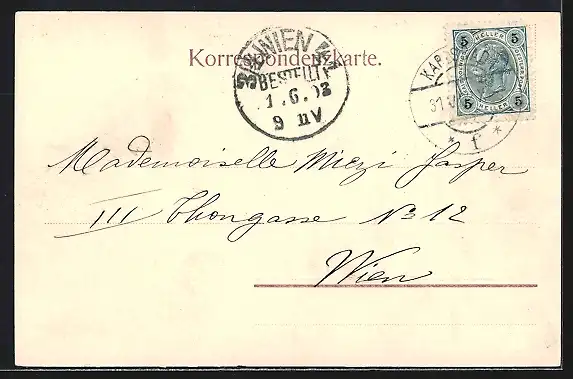 Korrespondenzkarte.
WIEN
BESTELLT
1.6.03
9 NV
5 HELLER 5
5 HELLER 5
KAR
31
* f *
Mademoiselle Miezi Jasper
III Thongasse No 12
Wien